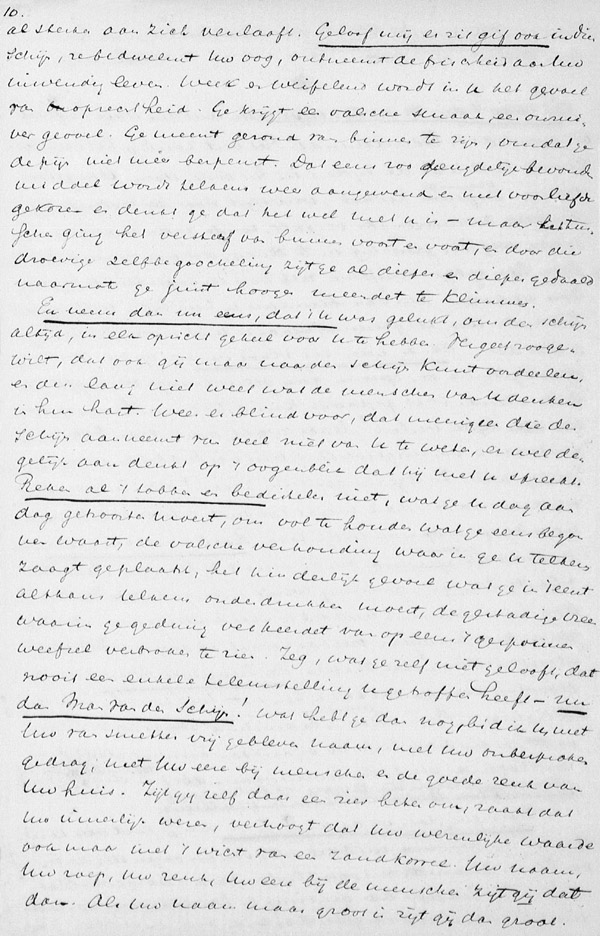 10.
al sterker aan zich verslaaft. Geloof mij er zit gif ook in dien
schijn, ze bedwelmt Uw oog, ontneemt de frischheid aan Uw
inwendig leven. Week en weifelend wordt in U het gevoel
van oprechtheid. Ge krijgt een valsche smaak, een onzui-
ver gevoel. Ge meent gezond van binnen te zijn, omdat ge
de pijn niet meer bespeurt. Dat eens zoo deugdelijk bevonden
middel wordt telkens weer aangewend en met voorliefde
gekozen en denkt ge dat het wel met U is – maar
ging het verderf van binnen voort en voort, en door die
droevige zelfbegoocheling zijt ge al dieper en dieper gedaald
naarmate ge juist hooger meendet te klimmen.
En neem dan nu eens, dat 't U was gelukt, om den schijn
altijd, in elk opzicht geheel voor U te hebben. Vergeet zooge-
wilt, dat ook gij maar naar den schijn kunt oordeelen,
en dus lang niet weet wat de menschen van U denken
in hun hart. Wees er blind voor, dat menigeen die den
schijn aanneemt van veel niet van U te weten, er wel de-
gelijk aan denkt op 't oogenblik dat hij met U spreekt.
Reken al 't tobben en bedisselen niet, wat ge U dag aan
dag getroosten moest, om vol te houden wat ge eens begon-
nen waart, de valsche verhouding waarin ge U telkens
zaagt geplaatst, het hinderlijk gevoel wat ge in 't eerst
althans telkens onderdrukken moest, de gestadige vrees
waarin ge gedurig verkeerdet van op eens 't gesponnen
weefsel verbroken te zien. Zeg, wat ge zelf niet gelooft, dat
nooit een enkele teleurstelling U getroffen heeft – nu
dan Man van den Schijn! wat hebt ge dan nog, bid ik U, met
Uw van smetten vrij gebleven naam, met Uw onbesproken
gedrag, met Uw eere bij menschen en de goede reuk van
Uw huis. Zijt gij zelf daar een zier beter om, raakt dat
Uw innerlijk wezen, verhoogt dat Uw wezenlijke waarde
ook maar met 't wicht van een zandkorrel. Uw naam,
Uw roep, Uw reuk, Uw eere bij de menschen zijt gij dat
dan. Als Uw naam maar groot is zijt gij dan groot.